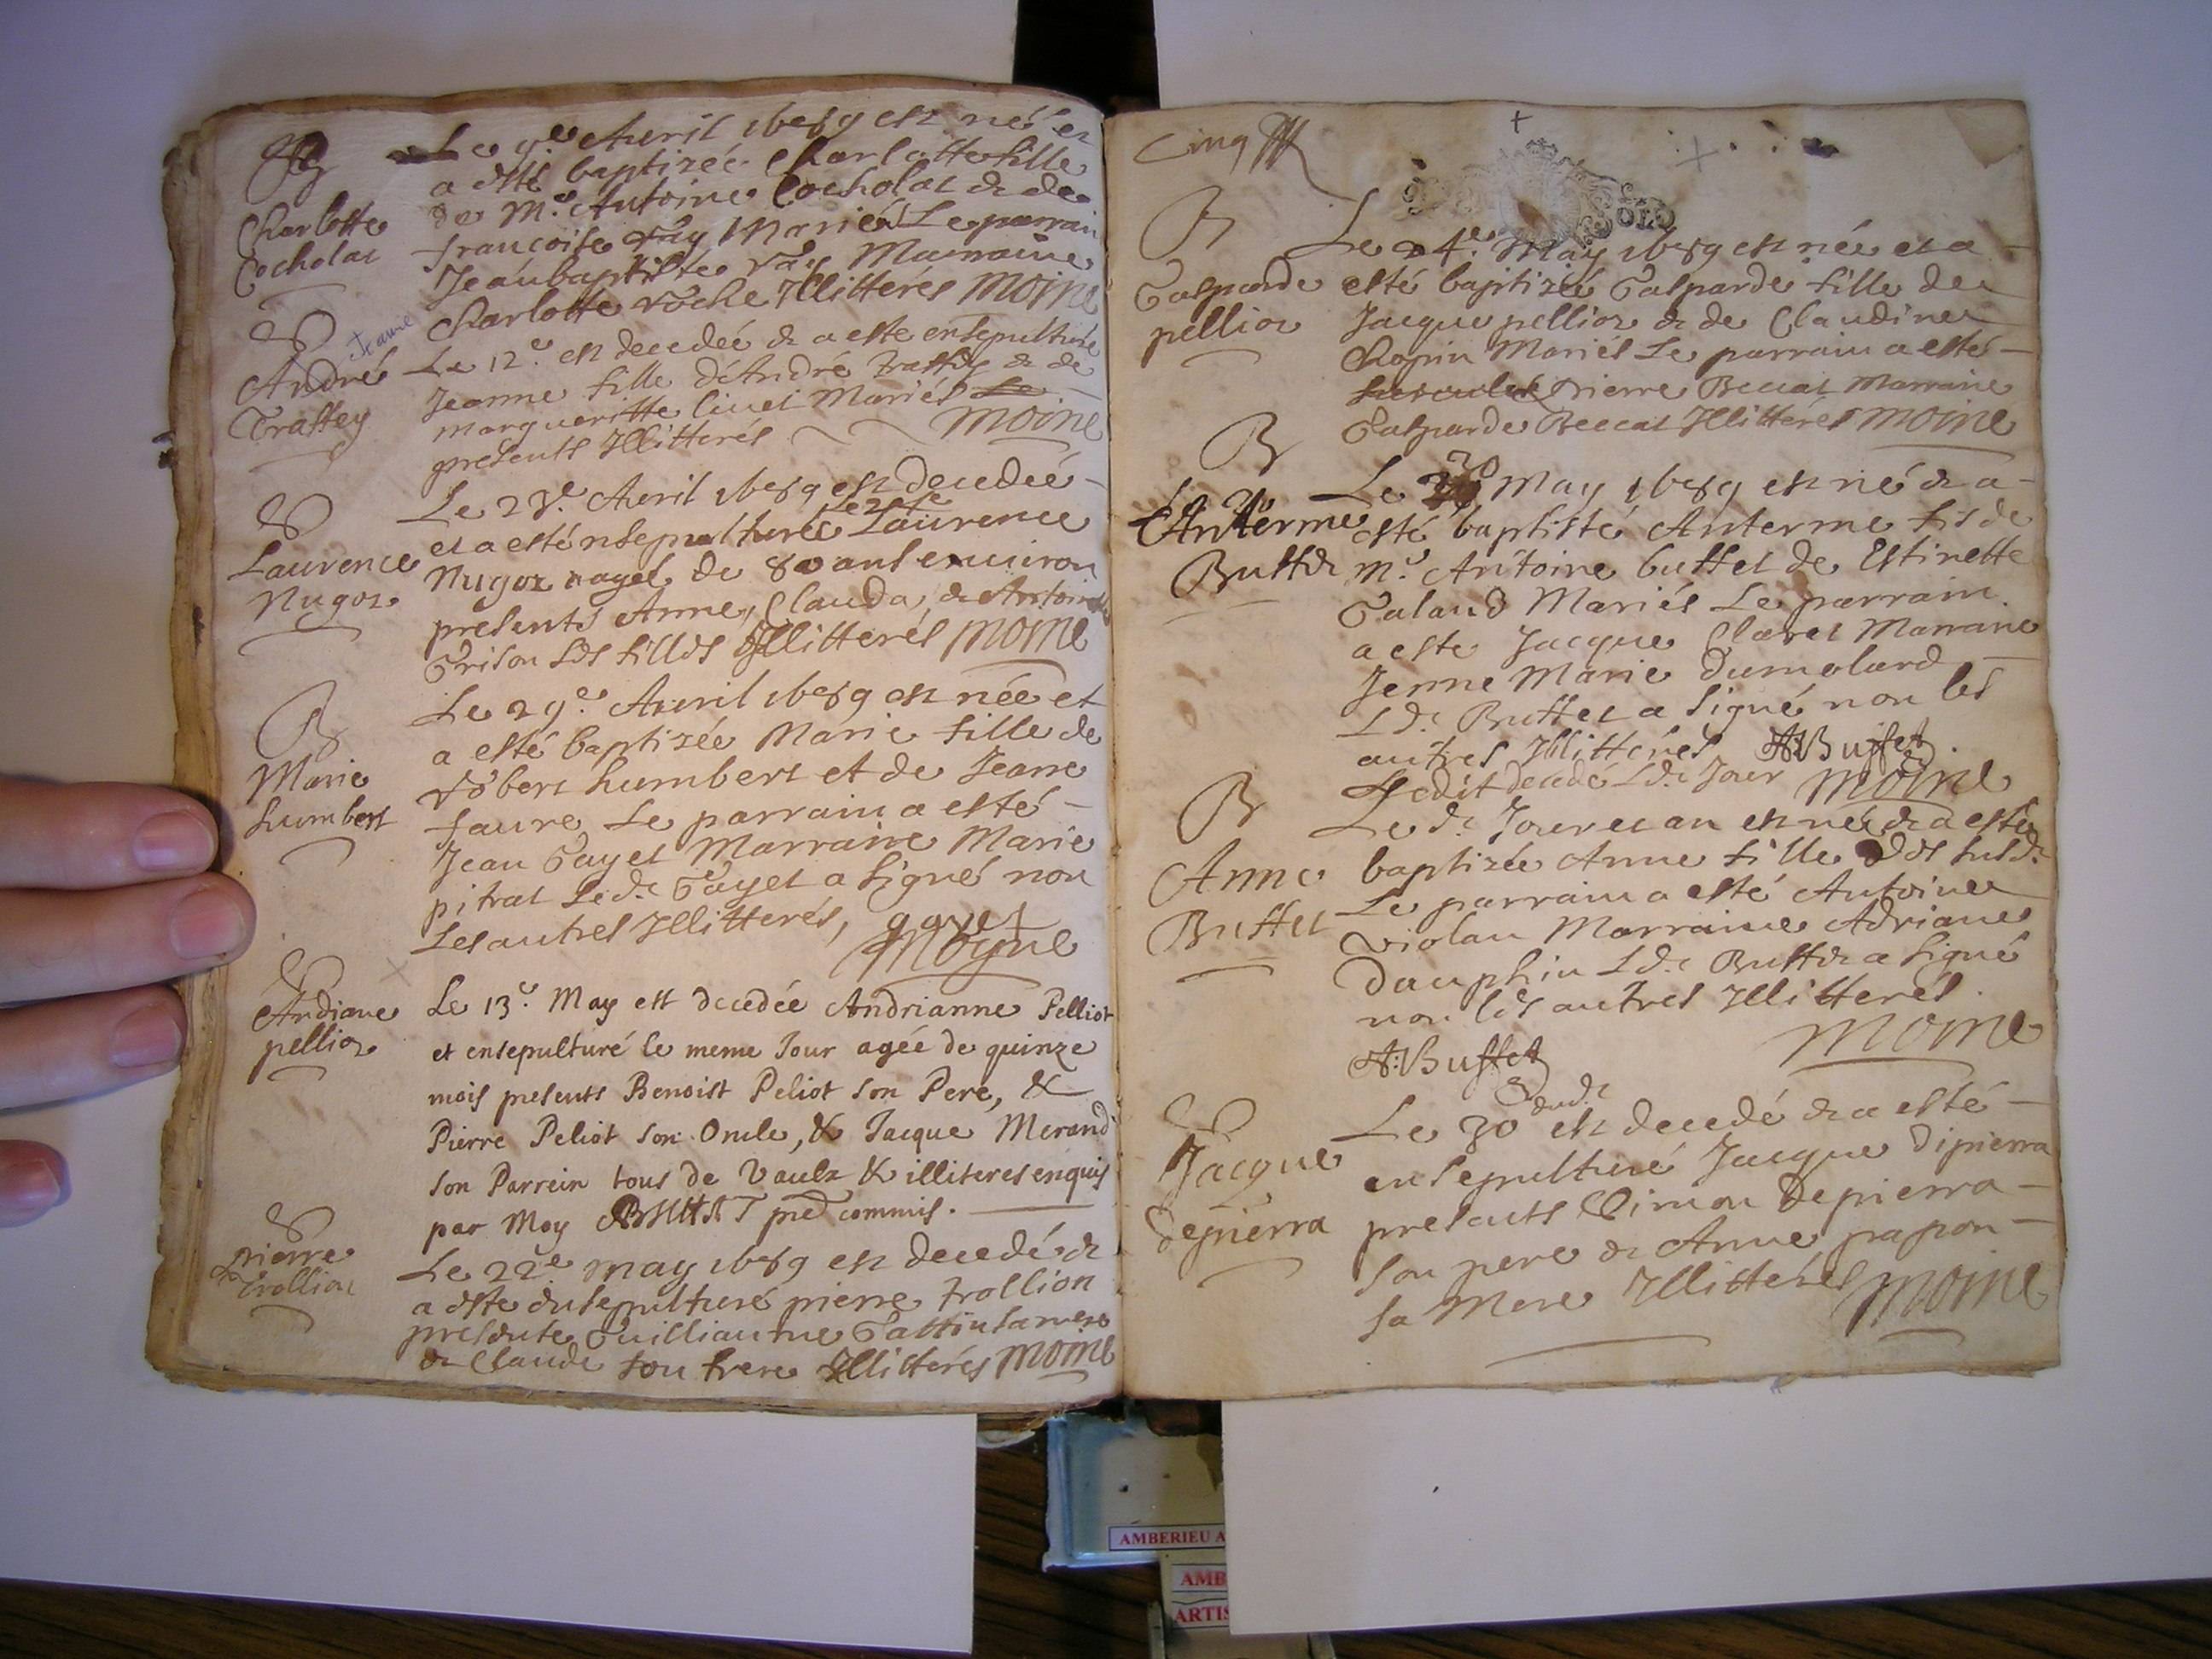 Charlotte
Cocholat
Le 9.e Avril 1689 est née et
a esté baptizée Charlotte fille
de M.e Antoine Cocholat & de
francoise Mariés Le parrain
Jeanbaptiste Marraine
Charlotte roche Jllitterés Moine
Jeanne
André
Traffey
Le 12.e est decedeé & a esté ensepulturé
Jeanne fille d'André & de
margueritte livet Mariés
presents Jllitterés Moine
Laurence
Nugoz
Le 23.e Avril 1689 est decedeé
et a esté ensepulturée Laurence
Nugoz de 80 ans environ
presents Anne, Clauda, & Antoine
Grison ses filles Jllitterés Moine
Marie
humbert
Le 29.e Avril 1689 est née et
a esté baptizée Marie fille de
robert humbert et de Jeanne
faure Le parrain a esté
Jean Gayet Marraine Marie
pitrat Led.t Gayet a signé non
Les autres Jllitterés, gayet
Moyne
Andiane
pelliot
Le 13.e May est decedée Andrianne Pelliot
et ensepulturé le meme Jour agée de quinze
mois presents Benoist Peliot son Pere, &
Pierre Peliot son Oncle, & Jacque Merand
son Parrein tous de Vaulx & illiteres enquis
par Moy commis.
pierre
trollion
Le 22e may 1689 est decedé &
a esté ensepulturé pierre trollion
presente Guilliaume Gattin sa mere
& Claude son frere Jllitterés Moine
Cinq
Gasparde
pelliot
Le 4.e May 1689 est née et a
esté baptizée Gasparde fille de
Jacque pelliot & de Claudine
Chapin Mariés Le parrain a esté
pierre Beccat Marraine
Gasparde Beccat Jllitterés Moine
B
Anterme
Buffet
Le 30 May 1689 est né & a
esté baptisté Anterme fis de
m.e Antoine buffet de Estinette
Galand Mariés Le parrain
a este Jacque Claret Marrane
Jenne Marie Dumolard
Ld.t Buffet a signé non les
autres Jllitterés A:Buffet
Ledit decedé Ld.t Jour Moine
B
Anne
Buffet
Le d.t Jour et an est née & a esté
baptizée Anne fille des susd.t
Le parrain a esté Antoine
violan Marraine Adriane
Dauphin Ld.t Buffet a signé
non les autres Jllitterés
Moine
A:Buffet
Jacque
Depierra
dud.t
Le 30 est decedé & a esté
ensepulturé Jacque Dipierra
presents Simon Depierra
son pere & Anne papon
sa Mere Jllitterés Moine
AMBERIEU A
AMB
ARTIS